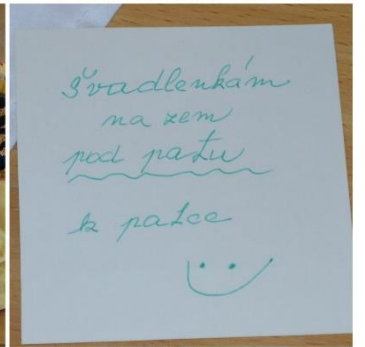 švadlenkám
na zem
pod patu
k patce